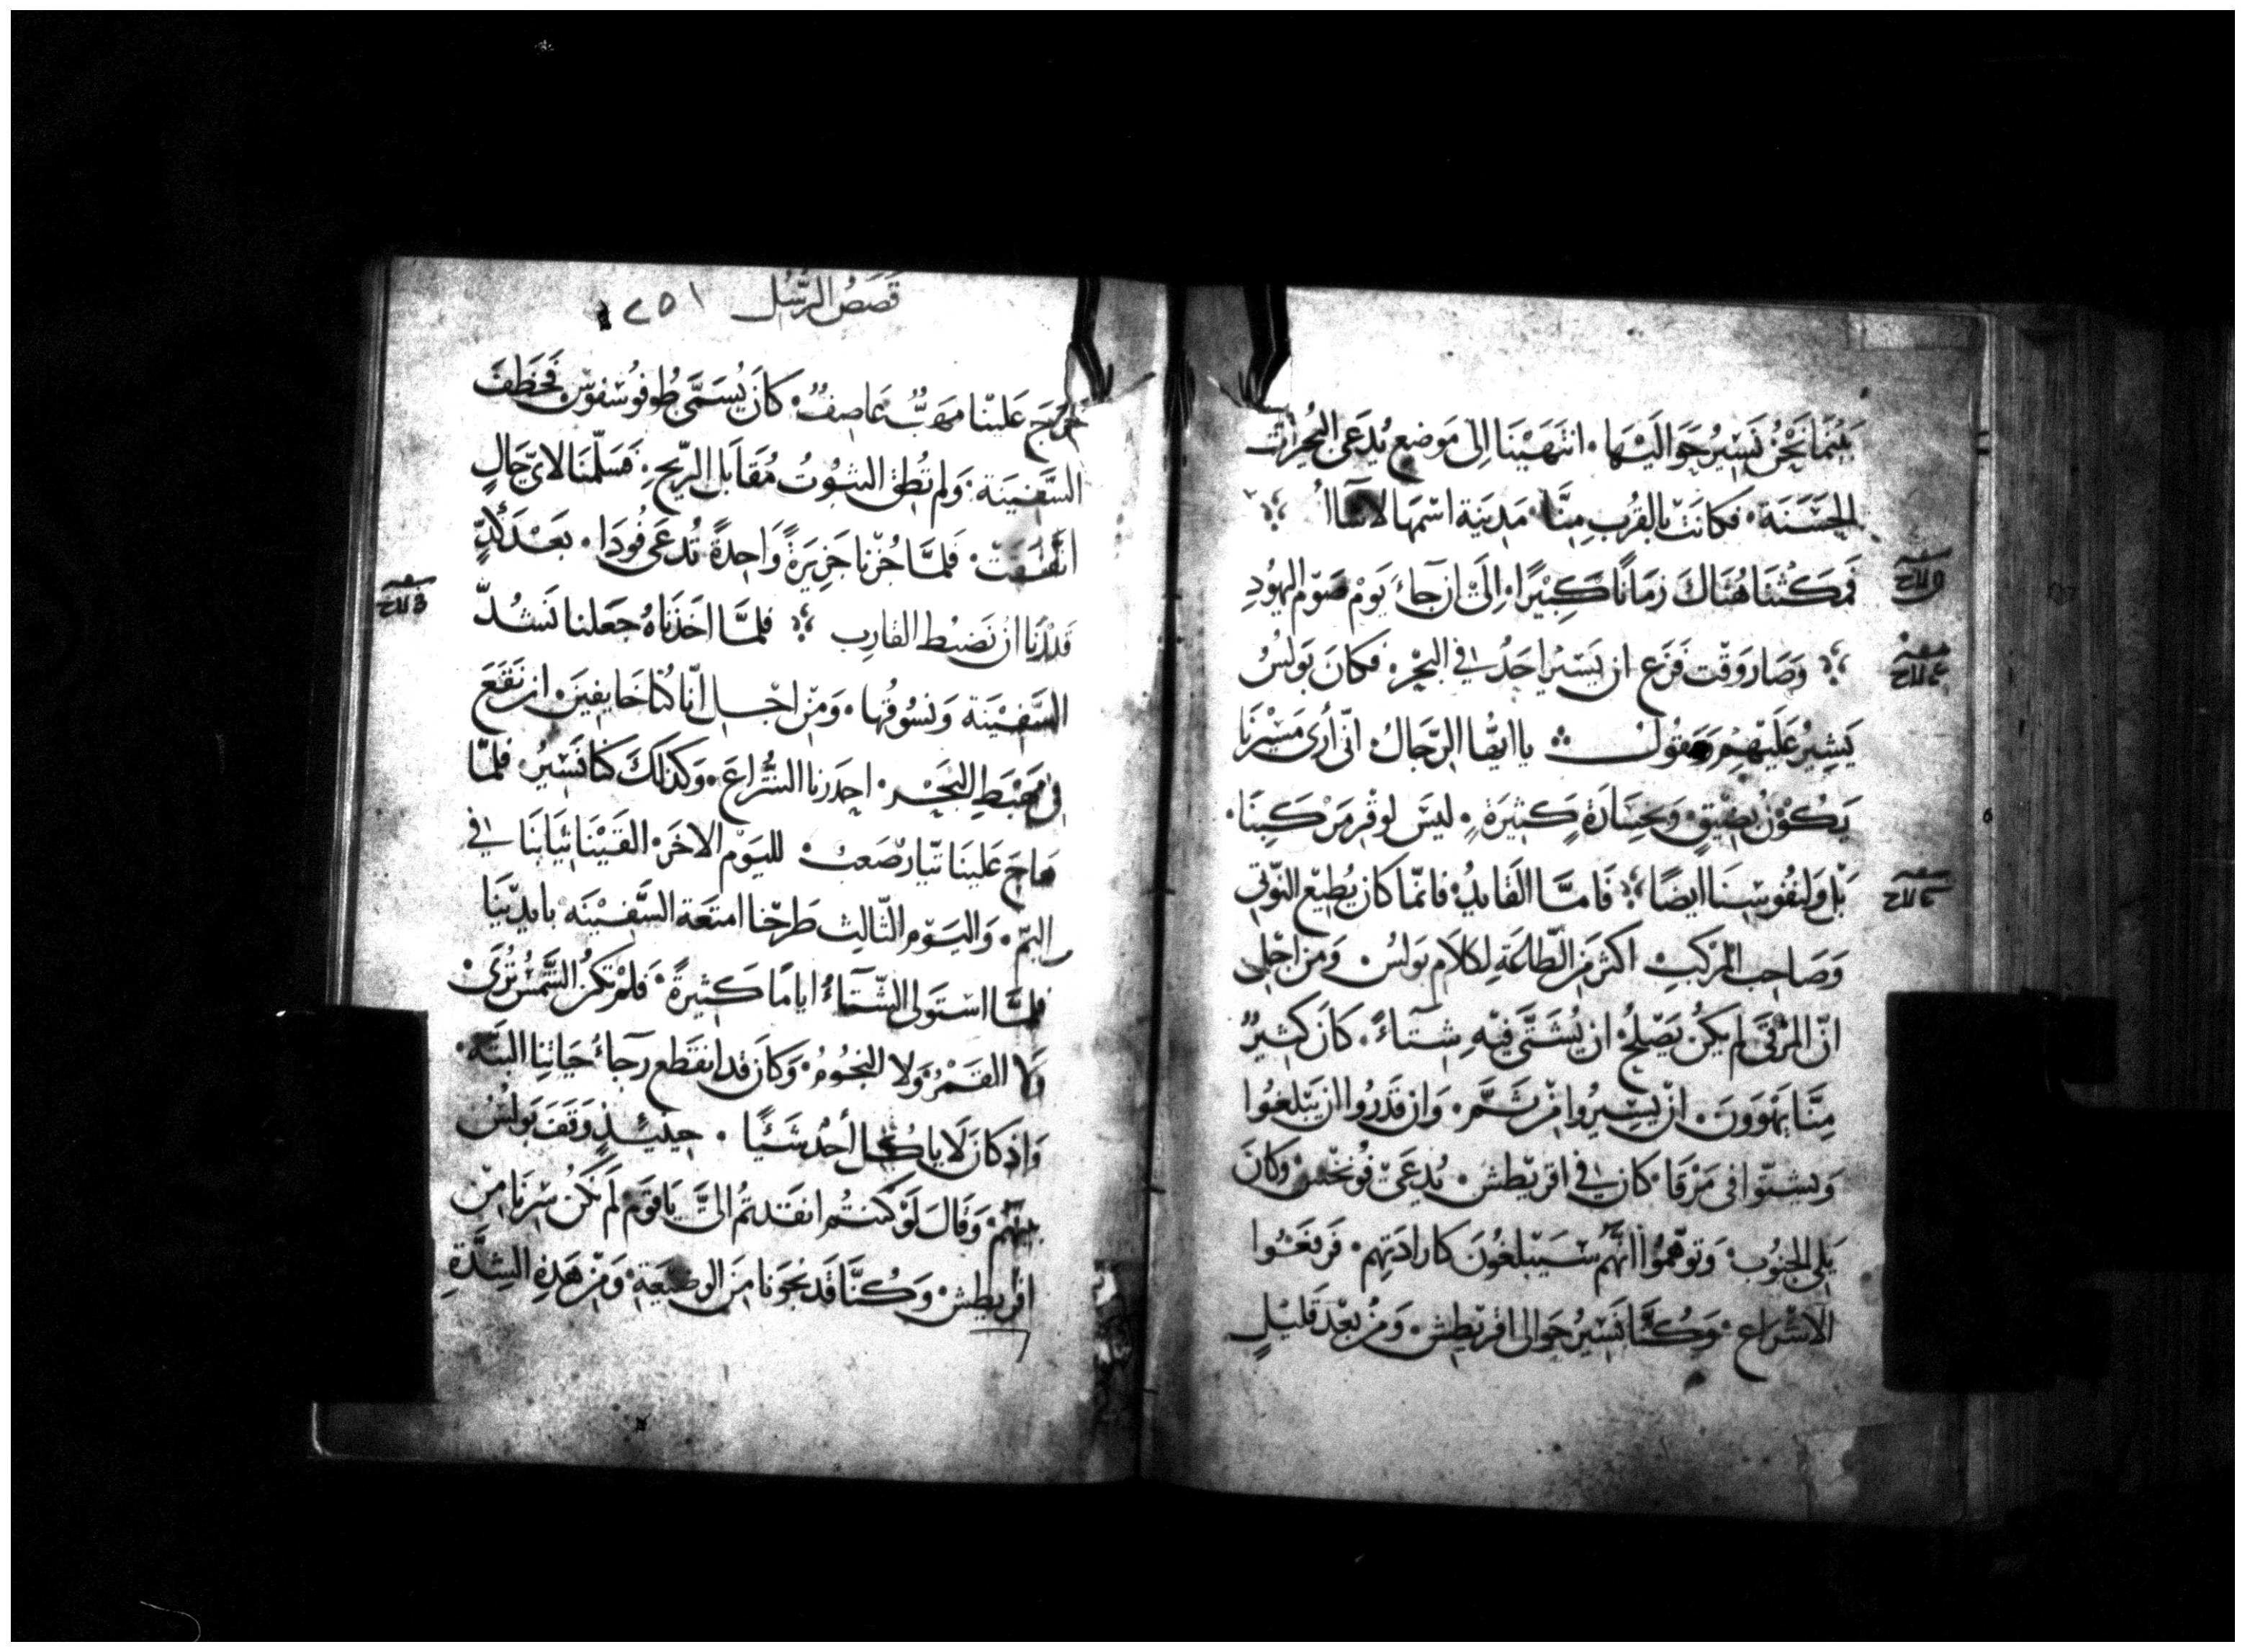 بينما نحن نسير حواليها انتهينا الى موضع يدعى البحيرات
الحسنة فكانت بالقرب منا مدينة اسمها لاسآا
فمكثنا هناك زمانا كبيرا الى ان جآء يوم صوم اليهود
وصار وقت فزع ان يسير احد في البحر فكان بولس
يشير عليهم ويقول يا ايها الرجال اني أرى مسيرنا
يكون بضيق وبخسارة كثيرة ليس لوقر مركبنا
بل ولنفوسنا ايضا فامّا القايد فانما كان يطيع النوتي
وصاحب المركب اكثر من الطاعة لكلام بولس ومن اجل
ان المرقى لم يكن يصلح ان يشتى فيه شتآء كان كثير
منا يهوون ان يسيروا من ثم وان قدروا ان يبلغوا
ويشتوا في مرقا كان في اقريطش يدعى فونخس وكان
يلي الجنوب وتوهموا انهم سيبلغون كارادتهم فرفعوا
الاشراع وكنا نسير حوالى اقريطش ومن بعد قليل
قصص الرسل ١٥٢
خرج علينا مهب عاصف كان يسمى طوفوشفوس فخطف
السفينة ولم تطق الثبوت مقابل الريح فسلمنا لاي حال
اتفقت فلما جزنا جزيرة واحدة تدعى قودا بعد كد
قدرنا ان نضبط القارب فلما اخذناه جعلنا نشد
السفينة ونسوقها ومن اجل انا كنا خايفين ان نقع
في مهبط البحر احدرنا الشراع وكذلك كنا نسير فلما
هاج علينا تيار صعب لليوم الاخر القينا ثيابنا في
اليم واليوم الثالث طرحنا امتعة السفينه بايدينا
فلما استولى الشتآء اياما كثيرة فلم تكن الشمس ترى
ولا القمر ولا النجوم وكان قد انقطع رجآء حياتنا البته
واذ كان لا ياكل أحد شيئا حينئذ وقف بولس
بينهم وقال لو كنتم انقدتم الي يا قوم لم نكن سرنا من
اقريطش وكنا قد نجونا من الوضيعة ومن هذه الشدة